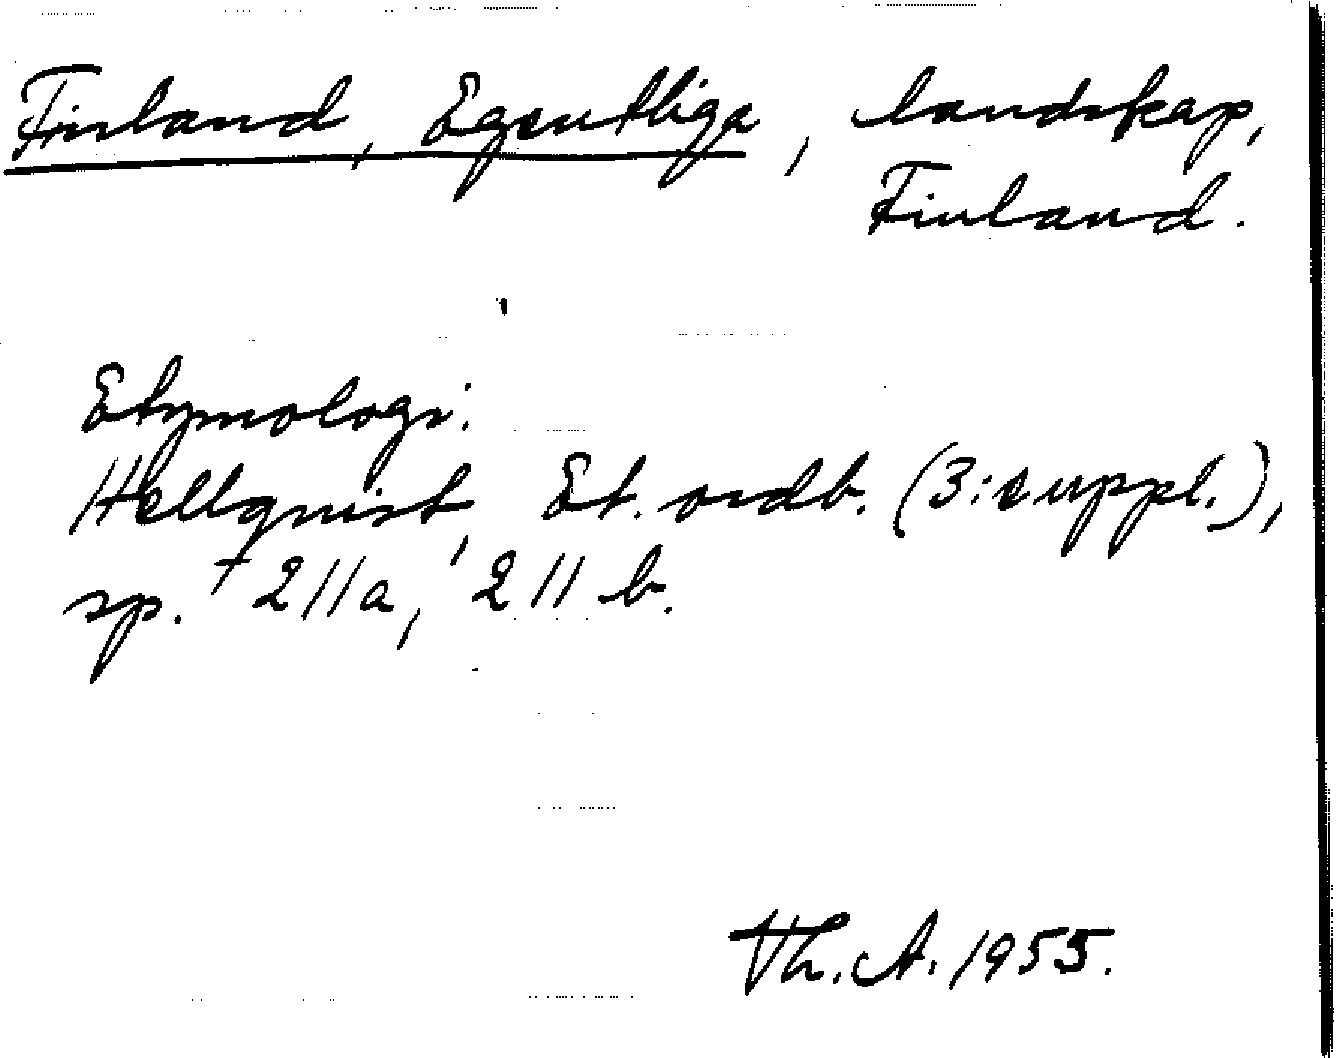 Finland, Egentliga, landskap,
Finland.
Etymologi:
Hellquist, Et. ordb. (3:suppl.),
sp. 211a, 211 b.
Th. A. 1955.